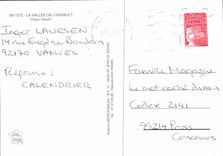 09-1072 - LA VALLEE DE L'HERAULT
Vieux Moulin
Inger LAURSEN
14 rue Eugène Baudouin
92170 VANVES
Réponse :
CALENDRIER
Famille Magazine
Le mot caché du mois
Cedex 2141
99214 Paris
Concours